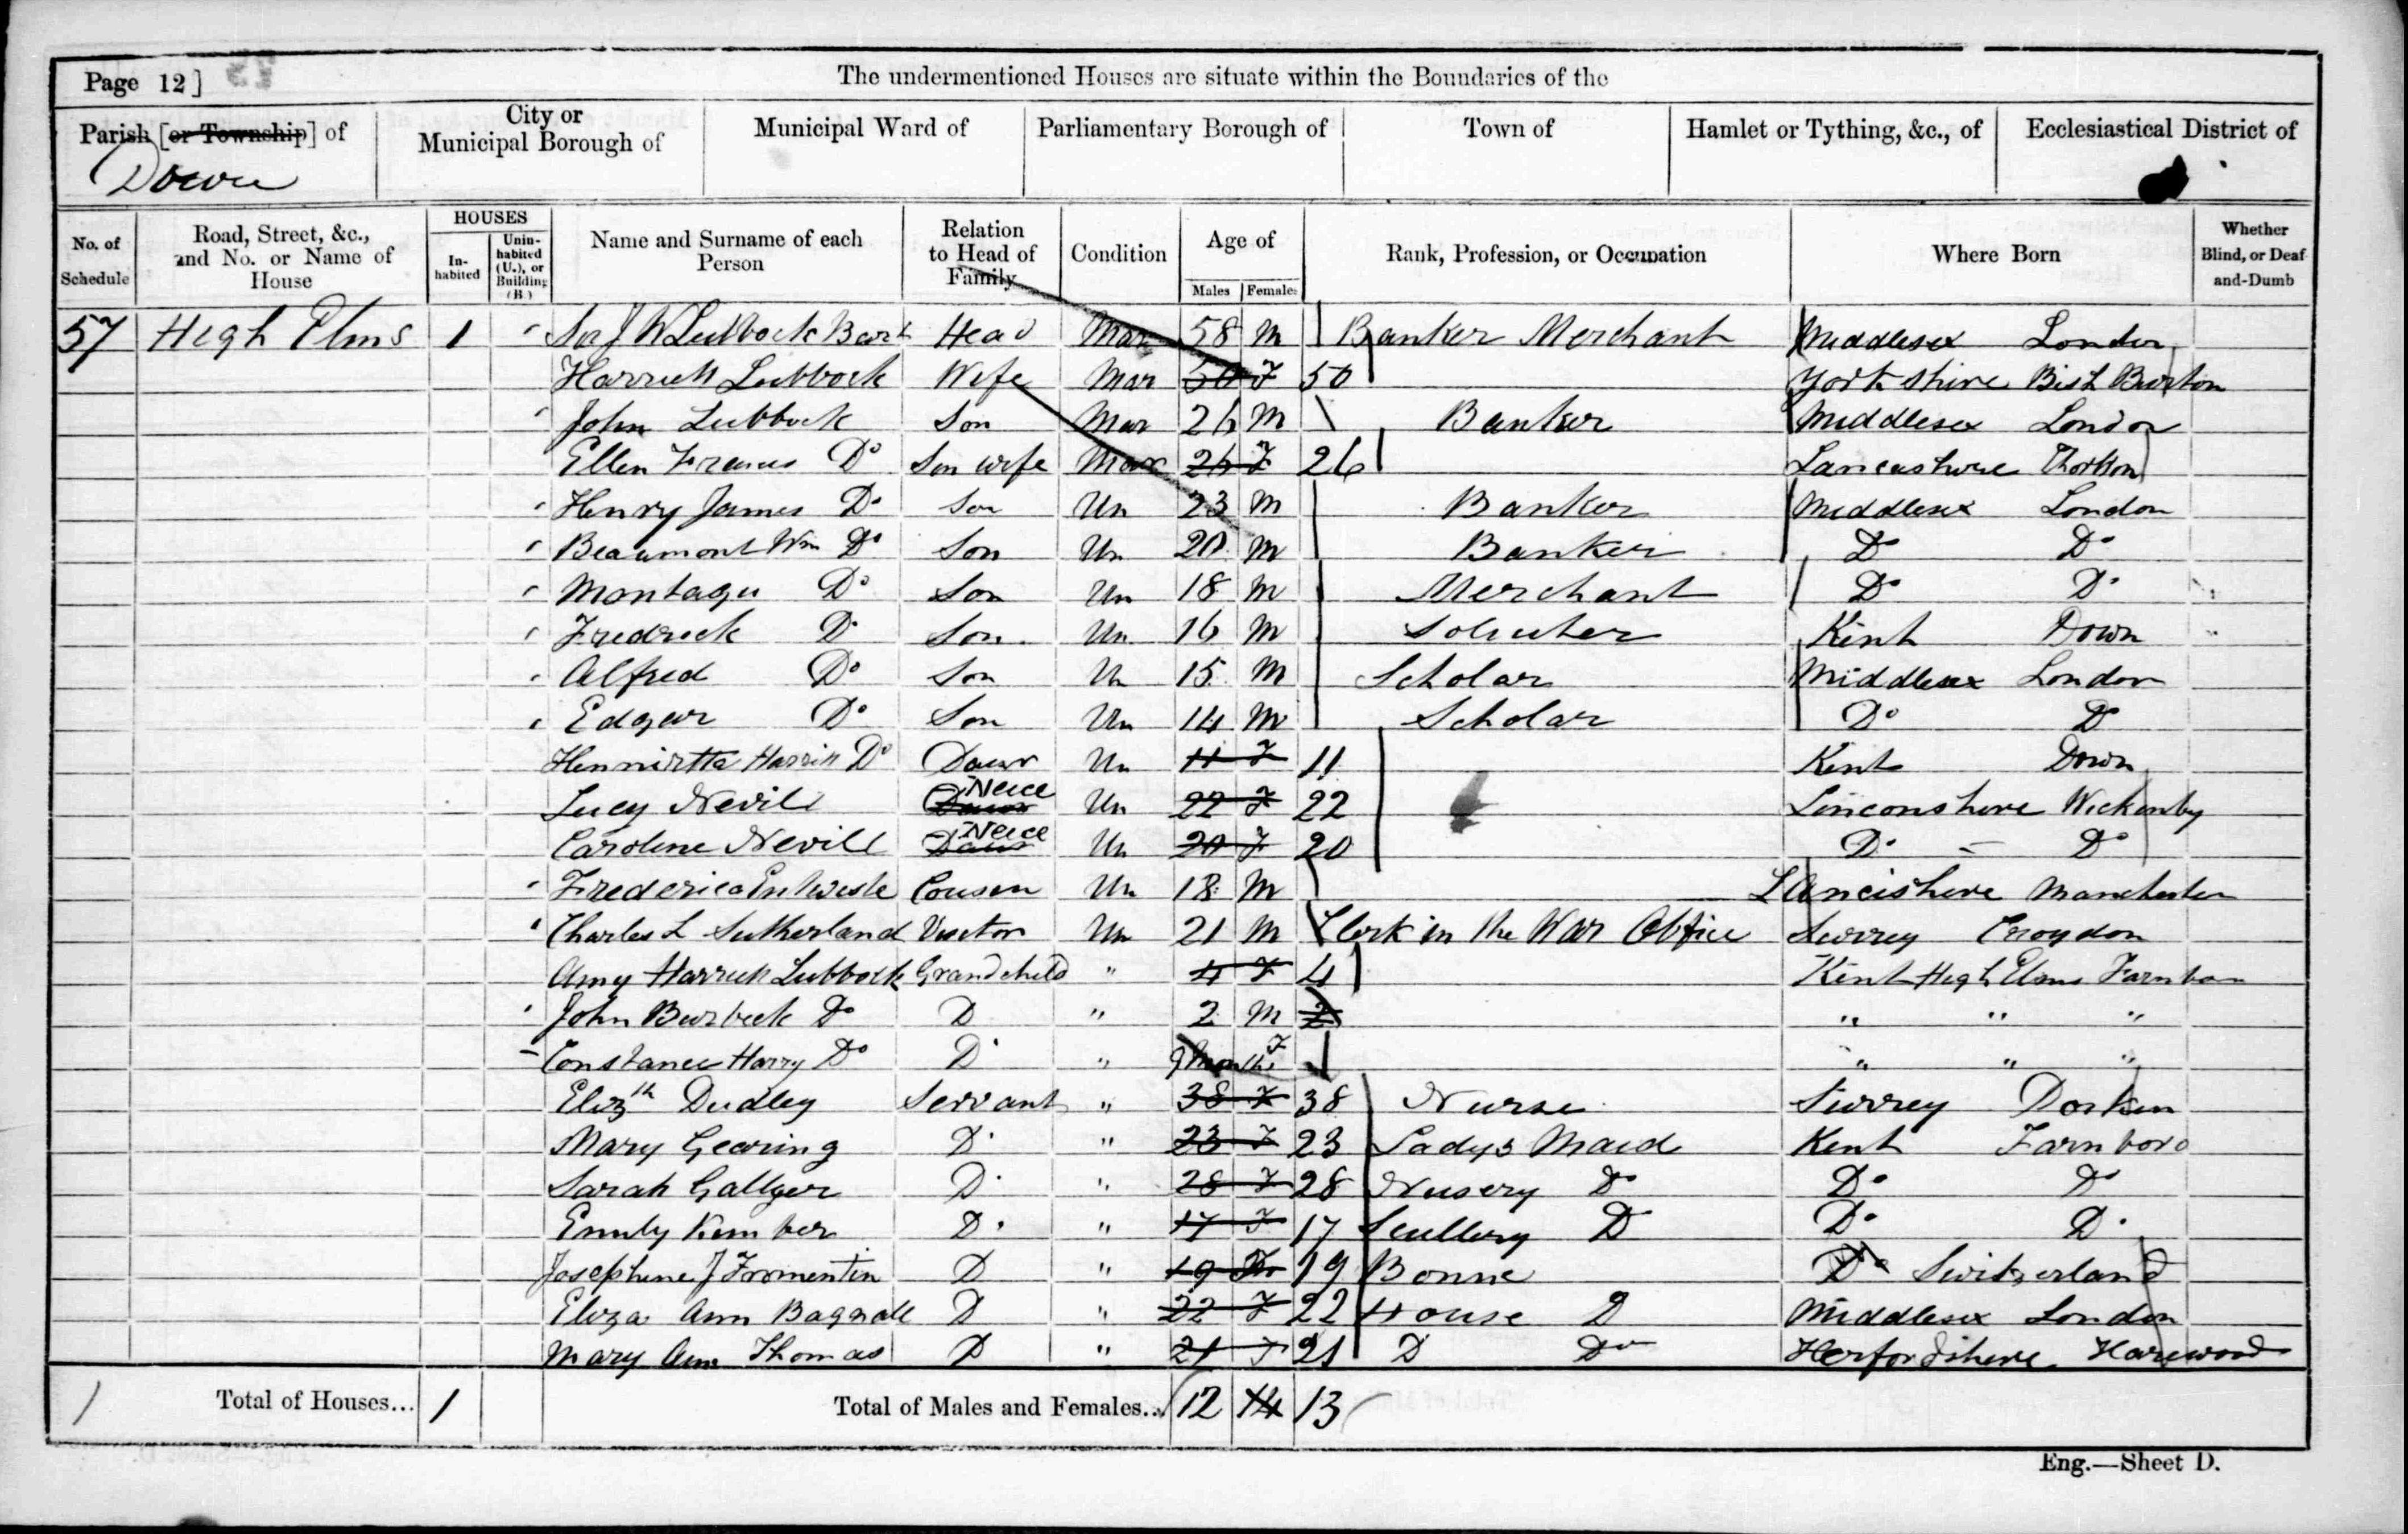 Page 12]
The undermentioned Houses are situate within the Boundaries of the
Parish [or Township] of
City or Municipal Borough of
Municipal Ward of
Parliamentary Borough of
Town of
Hamlet or Tything, &c., of
Ecclesiastical District of
Down
No. of Schedule
Road, Street, &c., and No. or Name of House
HOUSES
In-habited
Unin-habited (U.), or Building (B.)
Name and Surname of each Person
Relation to Head of Family
Condition
Age of
Males Females
Rank, Profession, or Occupation
Where Born
Whether Blind, or Deaf-and-Dumb
57 High Elms 1 Sir J W Lubbock Bart Head Mar 58 M Banker Merchant Middlesex London
Harriett Lubbock Wife Mar 50 F 50 Yorkshire Bish Burton
John Lubbock Son Mar 26 M Banker Middlesex London
Ellen Frances Do Son wife Mar 26 F 26 Lancashire
Henry James Do Son Un 23 M Banker Middlesex London
Beaumont Wm Do Son Un 20 M Banker Do Do
Montagu Do Son Un 18 M Merchant Do Do
Fredrick Do Son Un 16 M Solicitor Kent Down
Alfred Do Son Un 15 M Scholar Middlesex London
Edgar Do Son Un 14 M Scholar Do Do
Hennirtta Harriet Do Daur Un 11 F 11 Kent Down
Lucy Nevile Daur Neice Un 22 F 22 Linconshire Wickenby
Caroline Nevile Daur Neice Un 20 F 20 Do Do
Frederic Entwisle Cousen Un 18 M Lancishire Manchester
Charles L Sutherland Visitor Un 21 M Clerk in the War Office Surrey Croydon
Amy Harriett Lubbock Grandchild " 4 F 4 Kent High Elms Farnboro
John Burbeck Do D " 2 M 2 " " "
Constance Harry Do Do " 9 Months F " " "
Elizth Dudley Servant " 38 F 38 Nurse Surrey Dorken
Mary Gearing Do " 23 F 23 Ladys Maid Kent Farnboro
Sarah Gallyer Do " 28 F 28 Nusery Do Do Do
Emily Kember Do " 17 F 17 Scullery D Do Do
Josephine J Formentin D " 19 19 Bonne Do Switzerland
Eliza Ann Bagnall D " 22 F 22 House D Middlesex London
Mary Ann Thomas D " 21 F 21 D Do Herfordshire Harewood
1 Total of Houses... 1 Total of Males and Females... 12 14 13
Eng.—Sheet D.